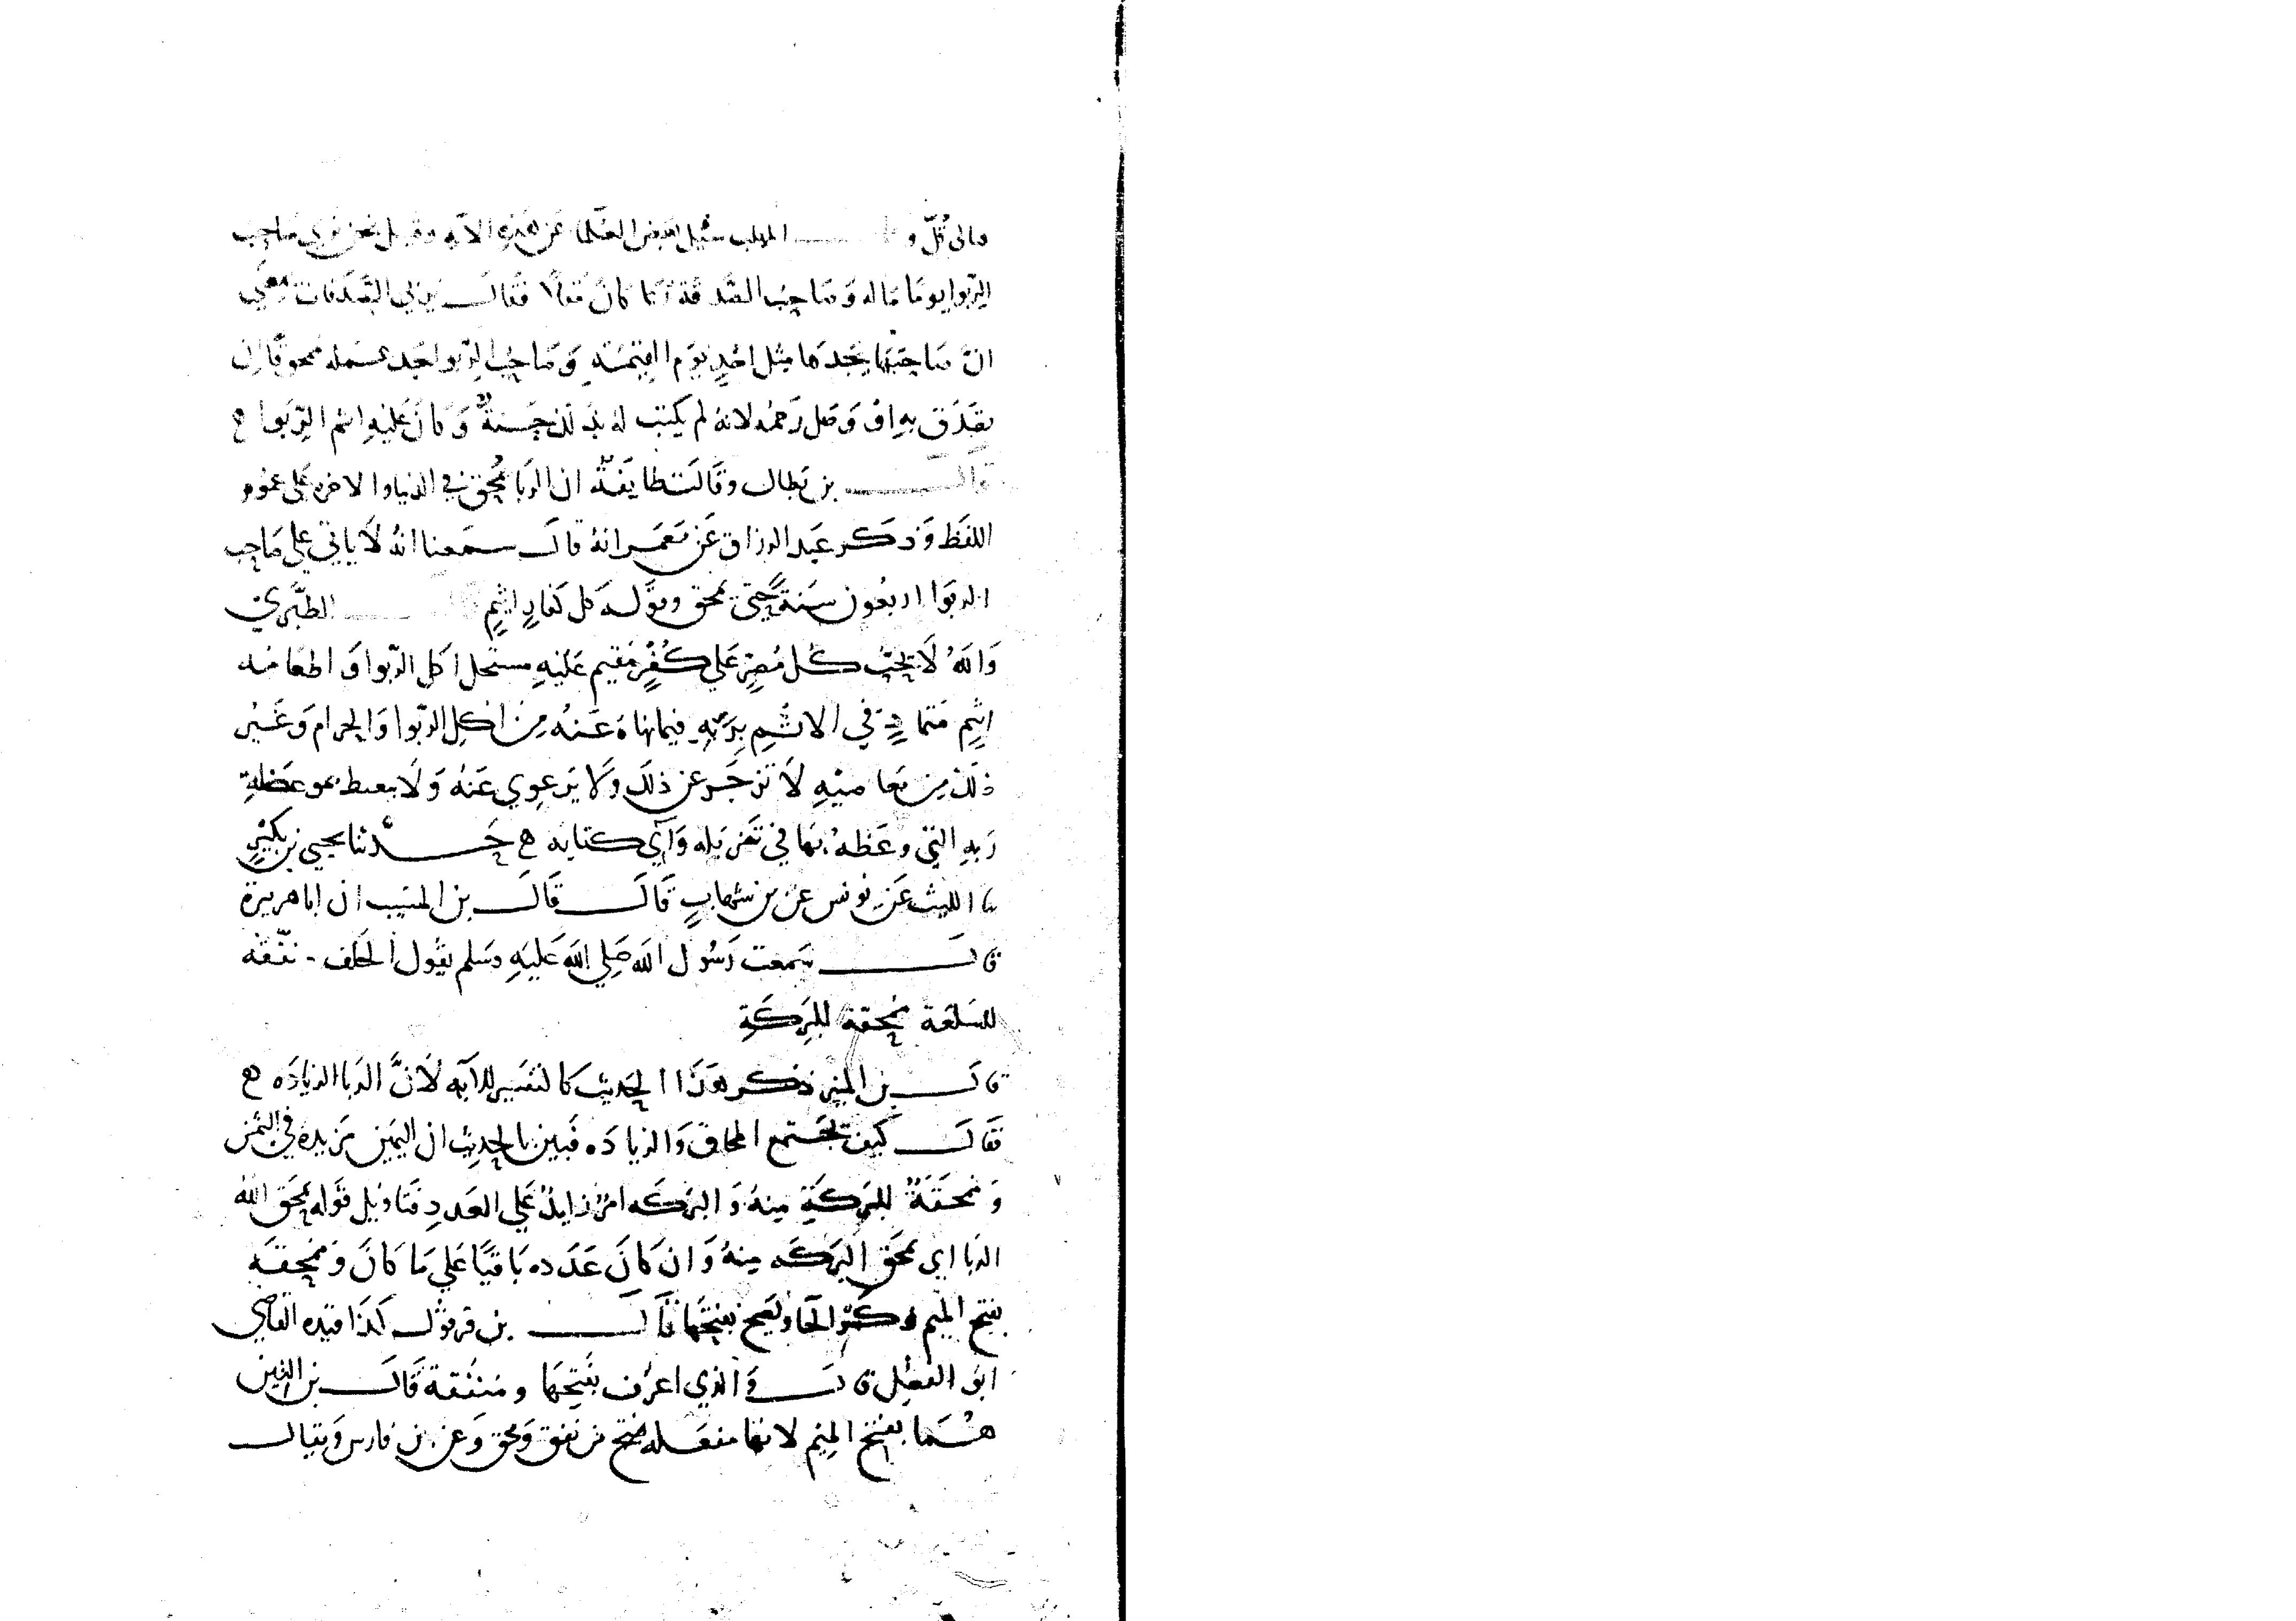 مالى قُلّ و المهلب سئيل بعض العلما عن هذه الآيه وقيل نحن نري صاحب
الرّبوا يوما ماله وَصَاحِبُ الصَّدقة كان مقلا فقال يربي الصَّدقات معي
انَّ صَاحبَهَا يَجدهَا مثل احُدٍ يَوم القيمَة وَصَاحِبُ الرّبوا يجد عمله ممحوقا ان
تصَدَق بهِ اوْ وَصَل رَحمهُ لانهُ لم يكتب لهُ بذَلك حَسَنةٌ وَكانَ عَليهِ اثم الرّبوا ه
قال بن بطال وقَالَت طايفَةٌ ان الربَا يُمحَق في الدنيا والاخره على عموم
اللفظ وَذكر عبد الرزاق عَن مَعمَر انهُ قال سمَعنا انهُ لَا ياتي علي صَاحِب
الربَوا اربعُون سَنة حَتى يمحق وقَولهَ كل كفارٍ اثيمٍ الطَّبَري
وَاللهُ لَا يحبّ كُل مُصِرٍّ عَلي كُفْرٍ مُقيم عَليهِ مستحل اكل الرّبوا وَاطعامه
اثيم متمادٍ في الاثم بِرَبهِ فيما نهاهُ عَنهُ مِن اكلِ الرّبوا وَالحرام وَغَير
ذلك من معَاصيْهِ لَا تزجَر عن ذلَك وَلا يَرعِوي عَنهُ وَلَا يتعظ بموعَظةِ
رَبهِ التي وعَظهُ بهَا في تَنزيله وَآي كتابه ه حَدثنا يحيي بن بكَيْرٍ
نا الليث عَن يُونس عن بن شهابٍ قَالَ قَالَ بن المسَيب ان اباهريرة
قال سَمعت رَسُول اللهَ صَلي اللهَ عَليَهِ وسَلم يقُول الحَلف منَفّقة
للسَلعَة مُمحقة للبَركَةِ
قال بن المنير ذكر هَذَا الحَديث كالتفسير للآيَه لَانَّ الربَا الزيادَه ه
فقال كَيف تجتَمع المحاق وَالزيادَه فَبين بالحدِيث ان اليَمين مَزيده في الثمن
وَمُمحَقَةٌ للبَركَةِ مِنهُ وَالبَركَه امرٌ زايدٌ عَلي العَددِ فتاويل قوله يمحَق الله
الربَا اي يمحَق البَركَه مِنهُ وَان كَانَ عَدَده بَاقيًا عَلي مَا كَانَ وَمُمحِقَه
بفتح الميم وكسر الحَا ويصح بفتحهَا قَال بن قرقول كذَا قيده القاضي
ابو الفضل قال وَالذي اعرف بفَتحِهَا ومنفُقة قَال بن التين
هُمَا بفتح الميم لانهَا مفعَله فتح من نفق وَمحق وَعن بن فارس وَيقال